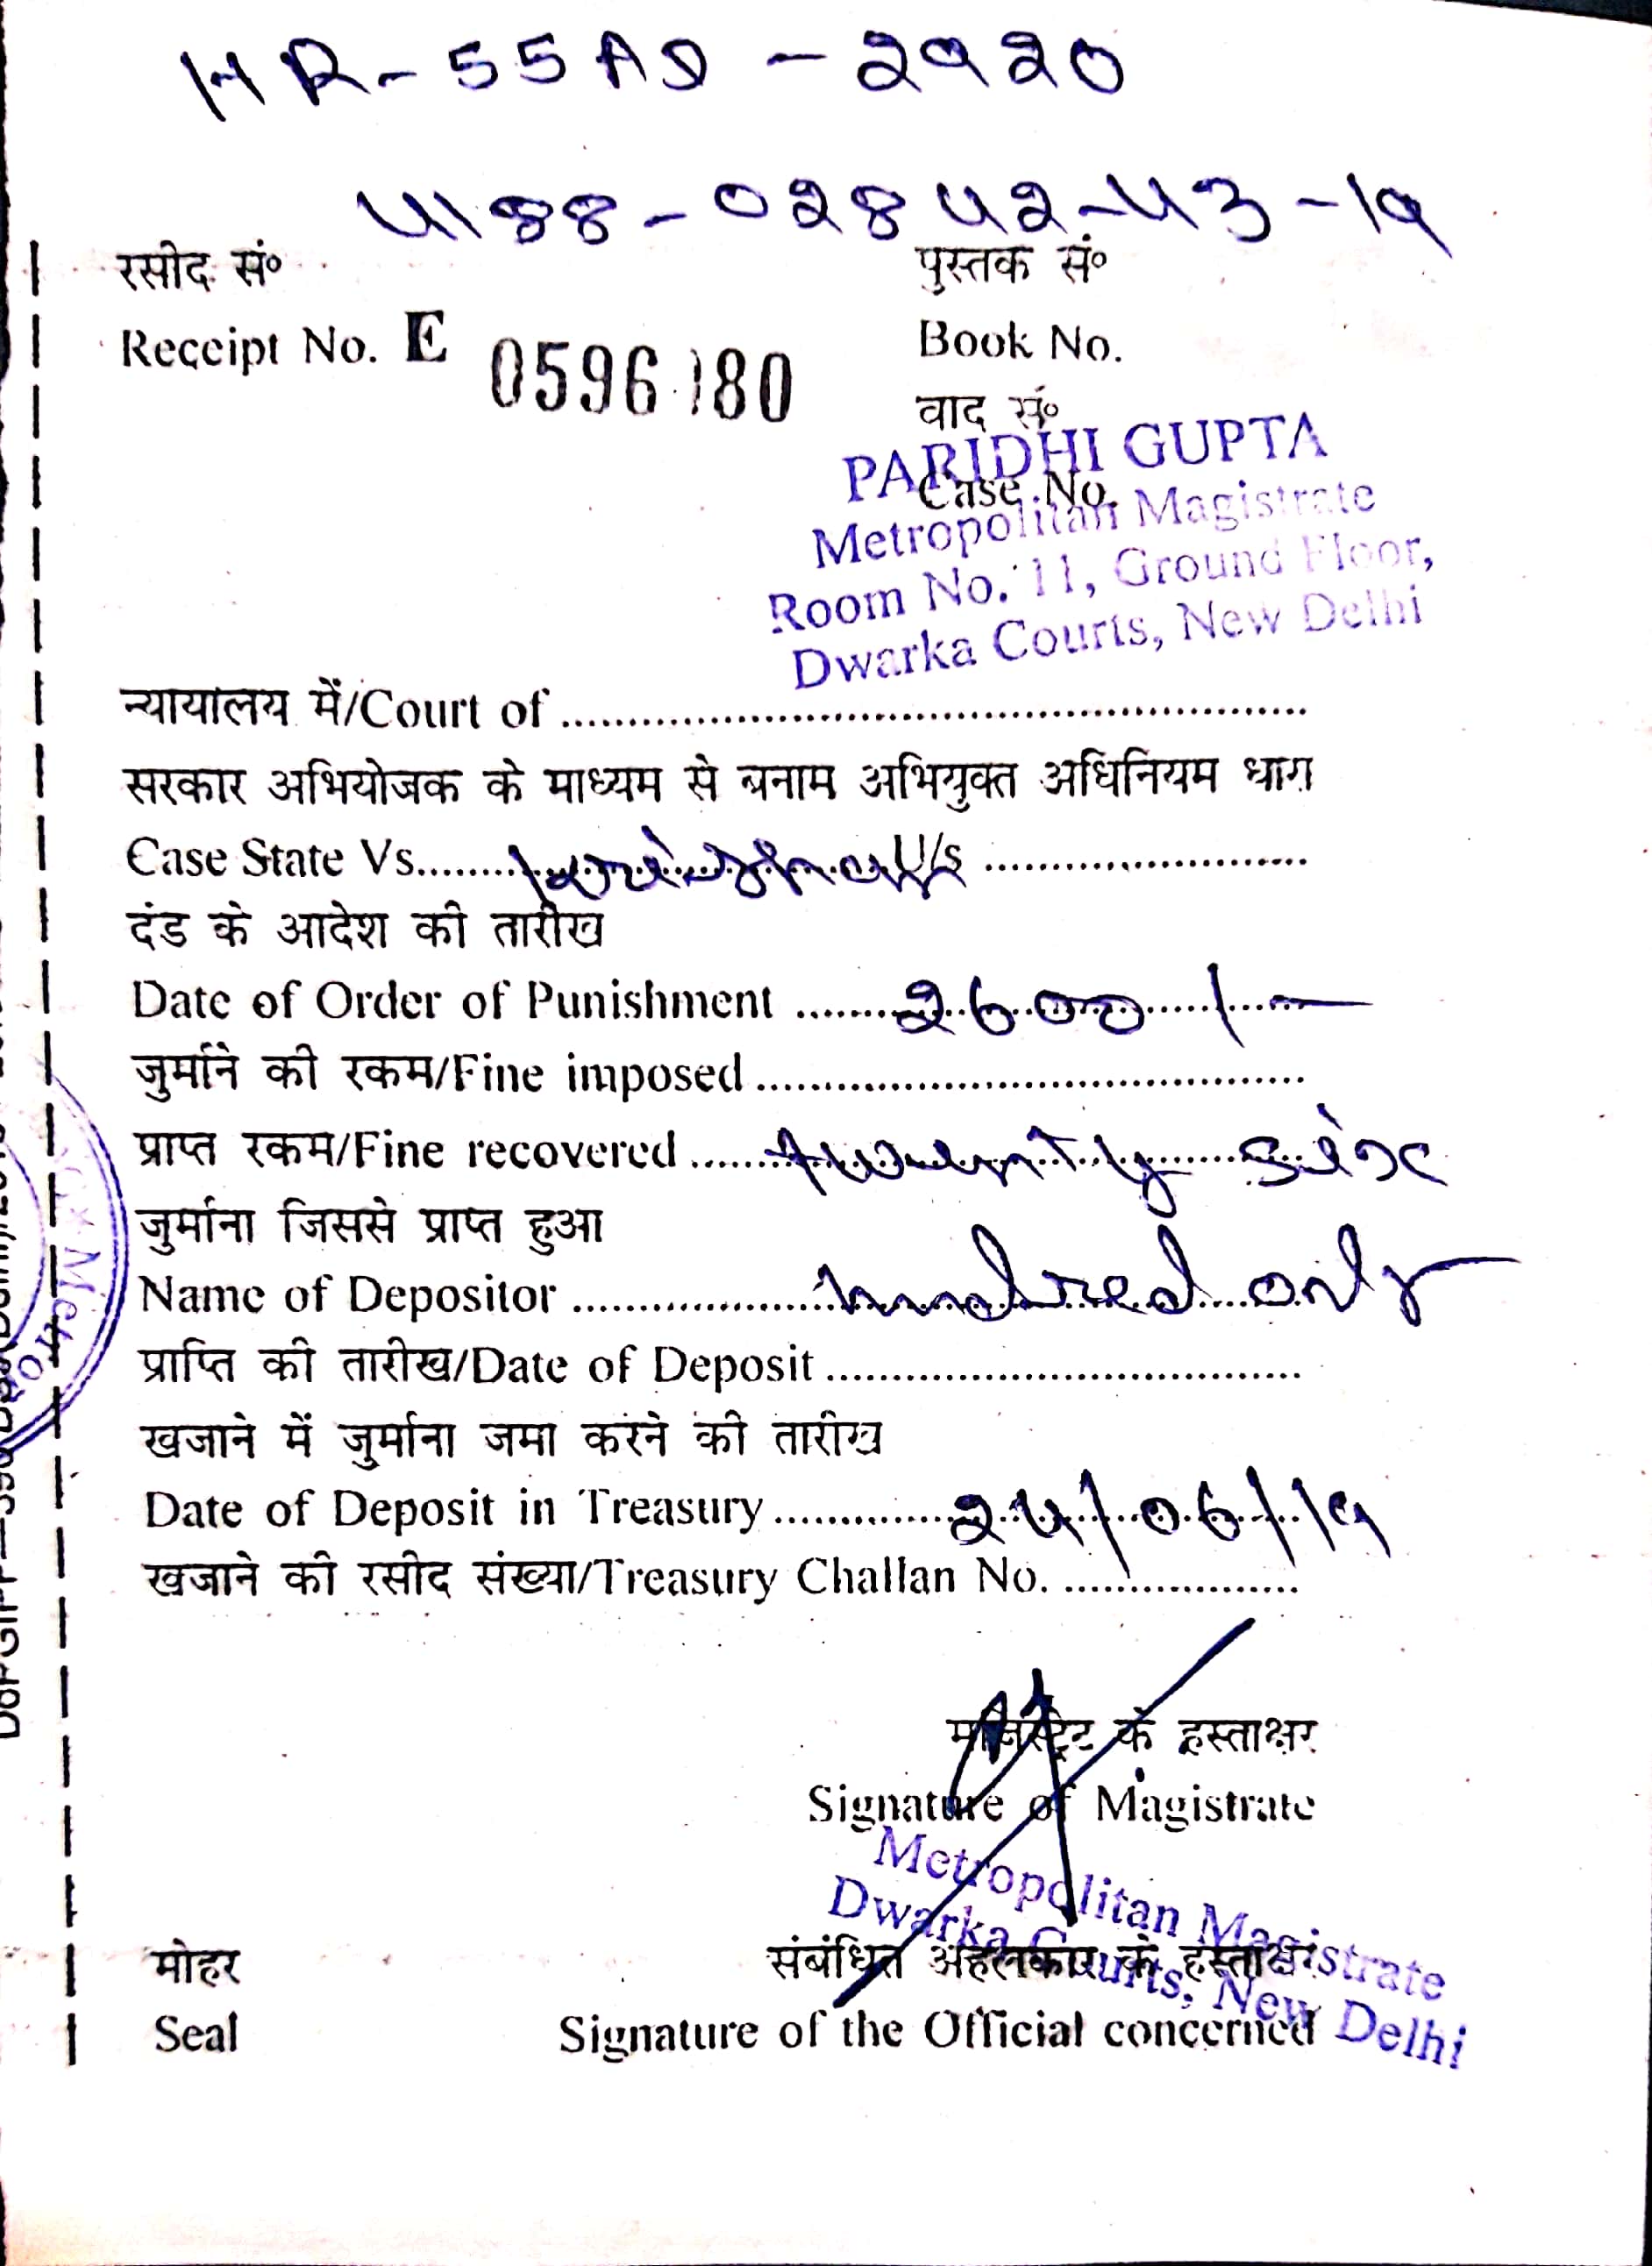 HR-55AD-2920
4188-02842-43-19
रसीद सं०
पुस्तक सं०
Receipt No. E 0596180
Book No.
वाद सं०
Case No.
PARIDHI GUPTA
Metropolitan Magistrate
Room No. 11, Ground Floor,
Dwarka Courts, New Delhi
न्यायालय में/Court of
सरकार अभियोजक के माध्यम से बनाम अभियुक्त अधिनियम धारा
Case State Vs. U/s
दंड के आदेश की तारीख
Date of Order of Punishment 2600/-
जुर्माने की रकम/Fine imposed
प्राप्त रकम/Fine recovered twenty six
जुर्माना जिससे प्राप्त हुआ
Name of Depositor hundred only
प्राप्ति की तारीख/Date of Deposit
खजाने में जुर्माना जमा करने की तारीख
Date of Deposit in Treasury 24/06/19
खजाने की रसीद संख्या/Treasury Challan No.
मजिस्ट्रेट के हस्ताक्षर
Signature of Magistrate
Metropolitan Magistrate
Dwarka Courts, New Delhi
मोहर
संबंधित अहलकार के हस्ताक्षर
Seal
Signature of the Official concerned